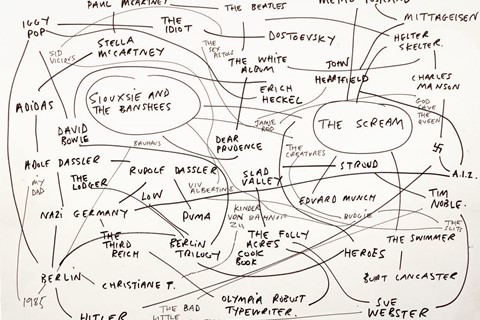 PAUL MCARTNEY
THE BEATLES
MITTAGEISEN
IGGY
POP
THE
IDIOT
DOSTOEVSKY
HELTER
SKELTER.
SID
VICIOUS
STELLA
McCARTNEY
THE
SEX
PISTOLS
THE WHITE
ALBUM
JOHN
HEARTFIELD
CHARLES
MANSON
ADIDAS
SIOUXSIE AND
THE BANSHEES
ERICH
HECKEL
GOD
SAVE
THE
QUEEN
JAMIE
REID
THE SCREAM
DAVID
BOWIE
BAUHAUS
DEAR
PRUDENCE
THE
CREATURES
卐
ADOLF DASSLER
RUDOLF DASSLER
STROUD
A.I.Z.
MY
DAD
THE
LODGER
LOW
VIV
ALBERTINE
SLAD
VALLEY
EDVARD MUNCH
TIM
NOBLE.
NAZI GERMANY
PUMA
KINDER
VON BAHNHOF
ZU
BUDGIE
THE
SLITS
THE
THIRD
REICH
BERLIN
TRILOGY
THE FOLLY
ACRES
COOK
BOOK
HEROES
THE SWIMMER
BERLIN
CHRISTIANE F.
BURT LANCASTER
1985
HITLER
THE BAD
LITTLE
OLYMPIA ROBUST
TYPEWRITER.
SUE
WEBSTER